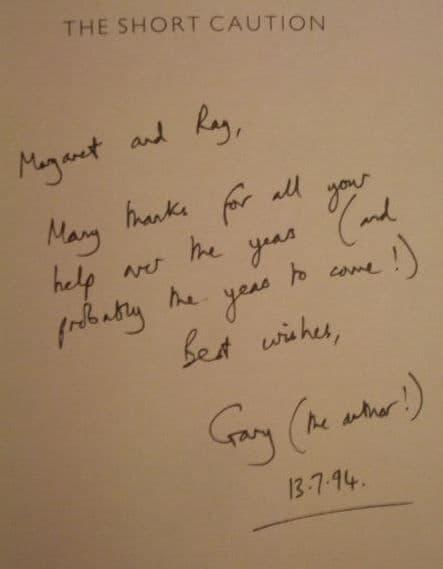 THE SHORT CAUTION
Margaret and Ray,
Many thanks for all your
help over the years (and
probably the years to come!)
Best wishes,
Gary (the author!)
13.7.94.